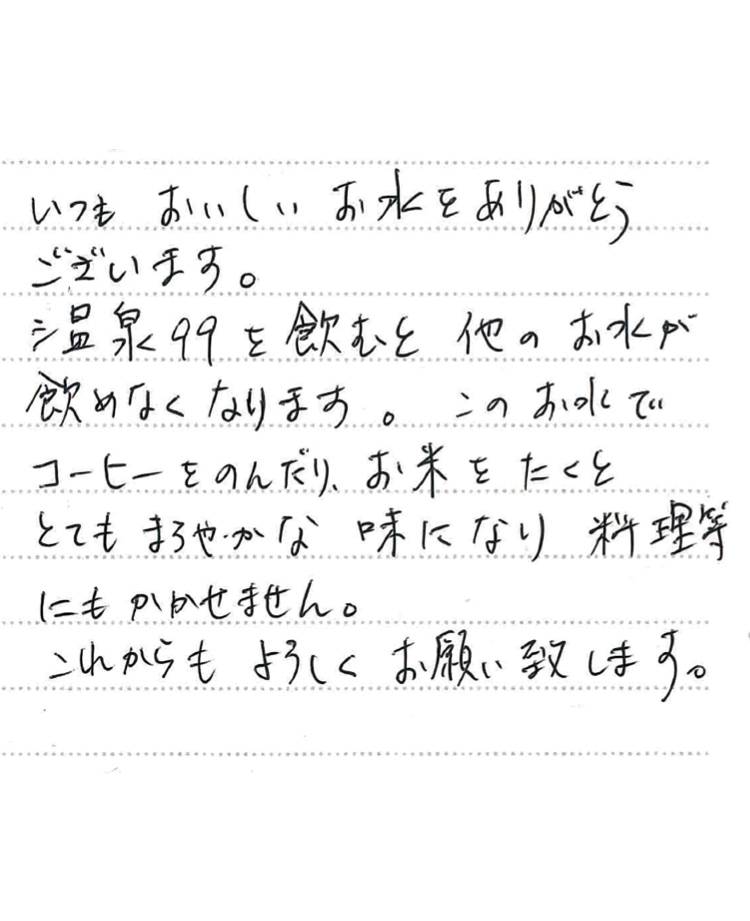 いつも おいしい お水をありがとう
ございます。
温泉99を飲むと 他の お水が
飲めなくなります。 この お水で
コーヒーをのんだり、お米をたくと
とても まろやかな 味になり 料理等
にも かかせません。
これからも よろしく お願い致します。